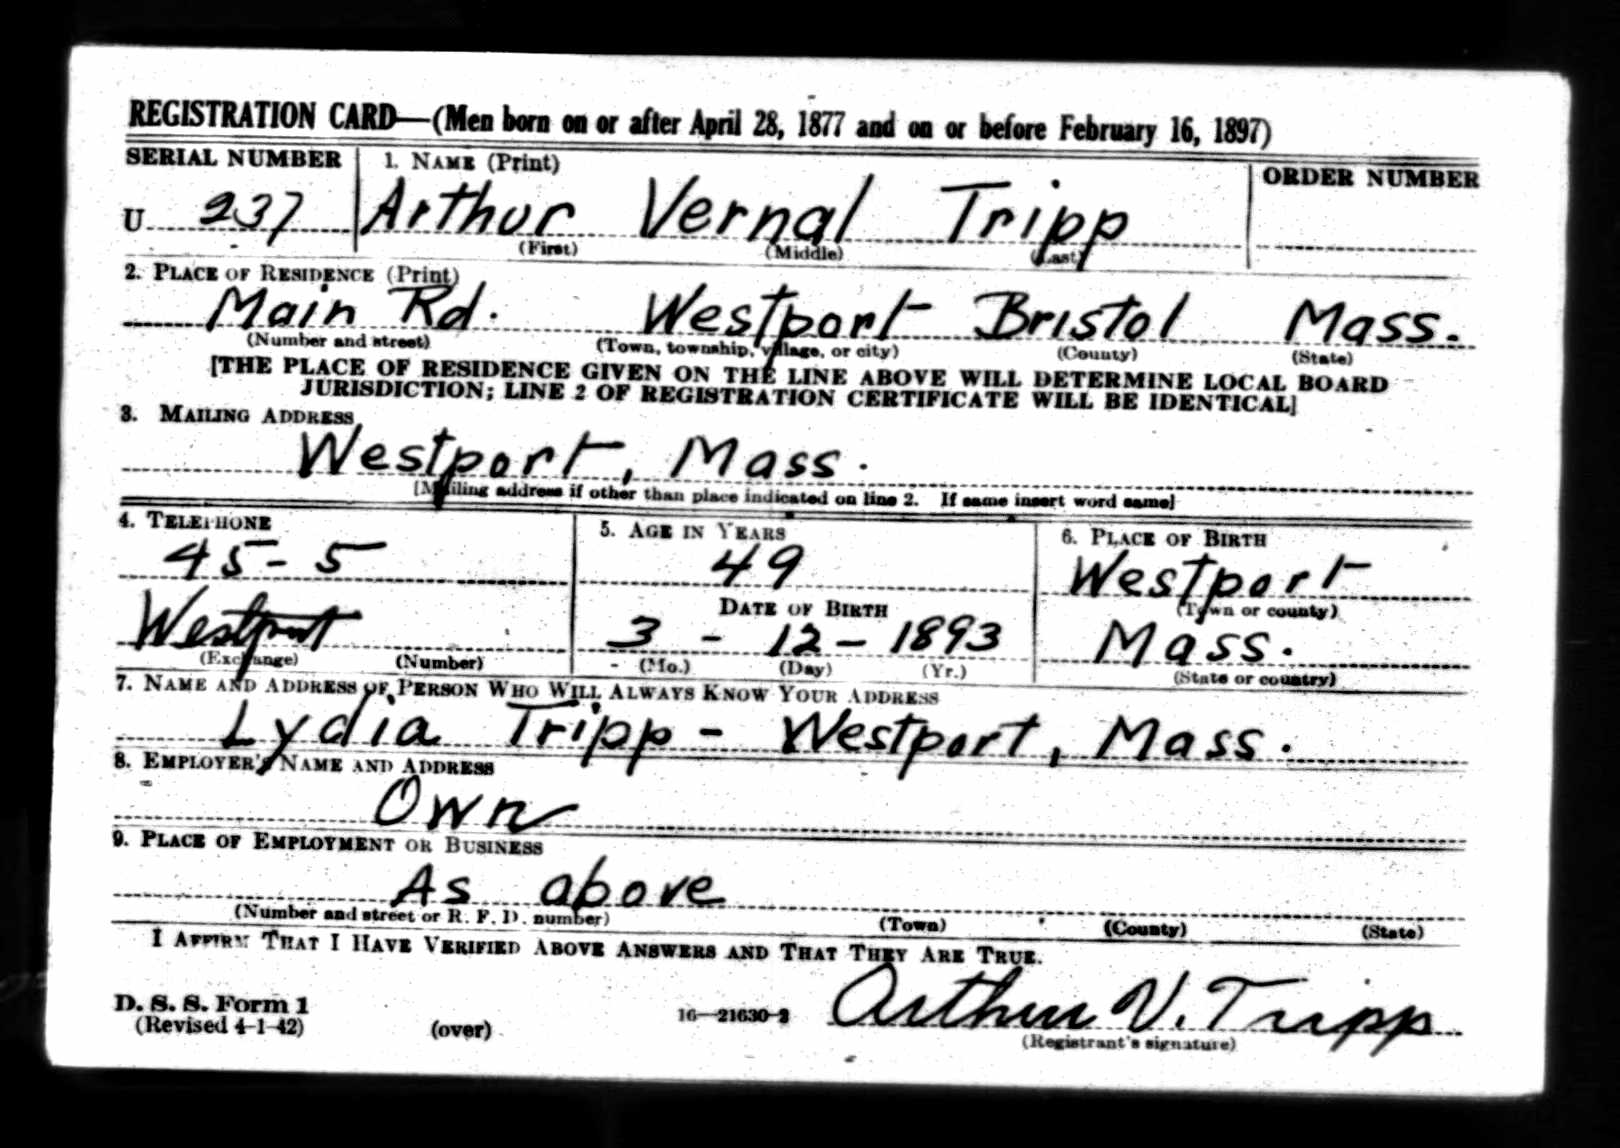 REGISTRATION CARD—(Men born on or after April 28, 1877 and on or before February 16, 1897)
SERIAL NUMBER 1. NAME (Print) ORDER NUMBER
U 237 Arthur Vernal Tripp
(First) (Middle) (Last)
2. PLACE OF RESIDENCE (Print)
Main Rd. Westport Bristol Mass.
(Number and street) (Town, township, village, or city) (County) (State)
[THE PLACE OF RESIDENCE GIVEN ON THE LINE ABOVE WILL DETERMINE LOCAL BOARD
JURISDICTION; LINE 2 OF REGISTRATION CERTIFICATE WILL BE IDENTICAL]
3. MAILING ADDRESS
Westport, Mass.
[Mailing address if other than place indicated on line 2. If same insert word same]
4. TELEPHONE 5. AGE IN YEARS 6. PLACE OF BIRTH
45-5 49 Westport
DATE OF BIRTH (Town or county)
Westport 3 - 12 - 1893 Mass.
(Exchange) (Number) (Mo.) (Day) (Yr.) (State or country)
7. NAME AND ADDRESS OF PERSON WHO WILL ALWAYS KNOW YOUR ADDRESS
Lydia Tripp - Westport, Mass.
8. EMPLOYER'S NAME AND ADDRESS
Own
9. PLACE OF EMPLOYMENT OR BUSINESS
As above
(Number and street or R. F. D. number) (Town) (County) (State)
I AFFIRM THAT I HAVE VERIFIED ABOVE ANSWERS AND THAT THEY ARE TRUE.
D. S. S. Form 1
(Revised 4-1-42) (over) 16—21630-2 Arthur V. Tripp
(Registrant's signature)